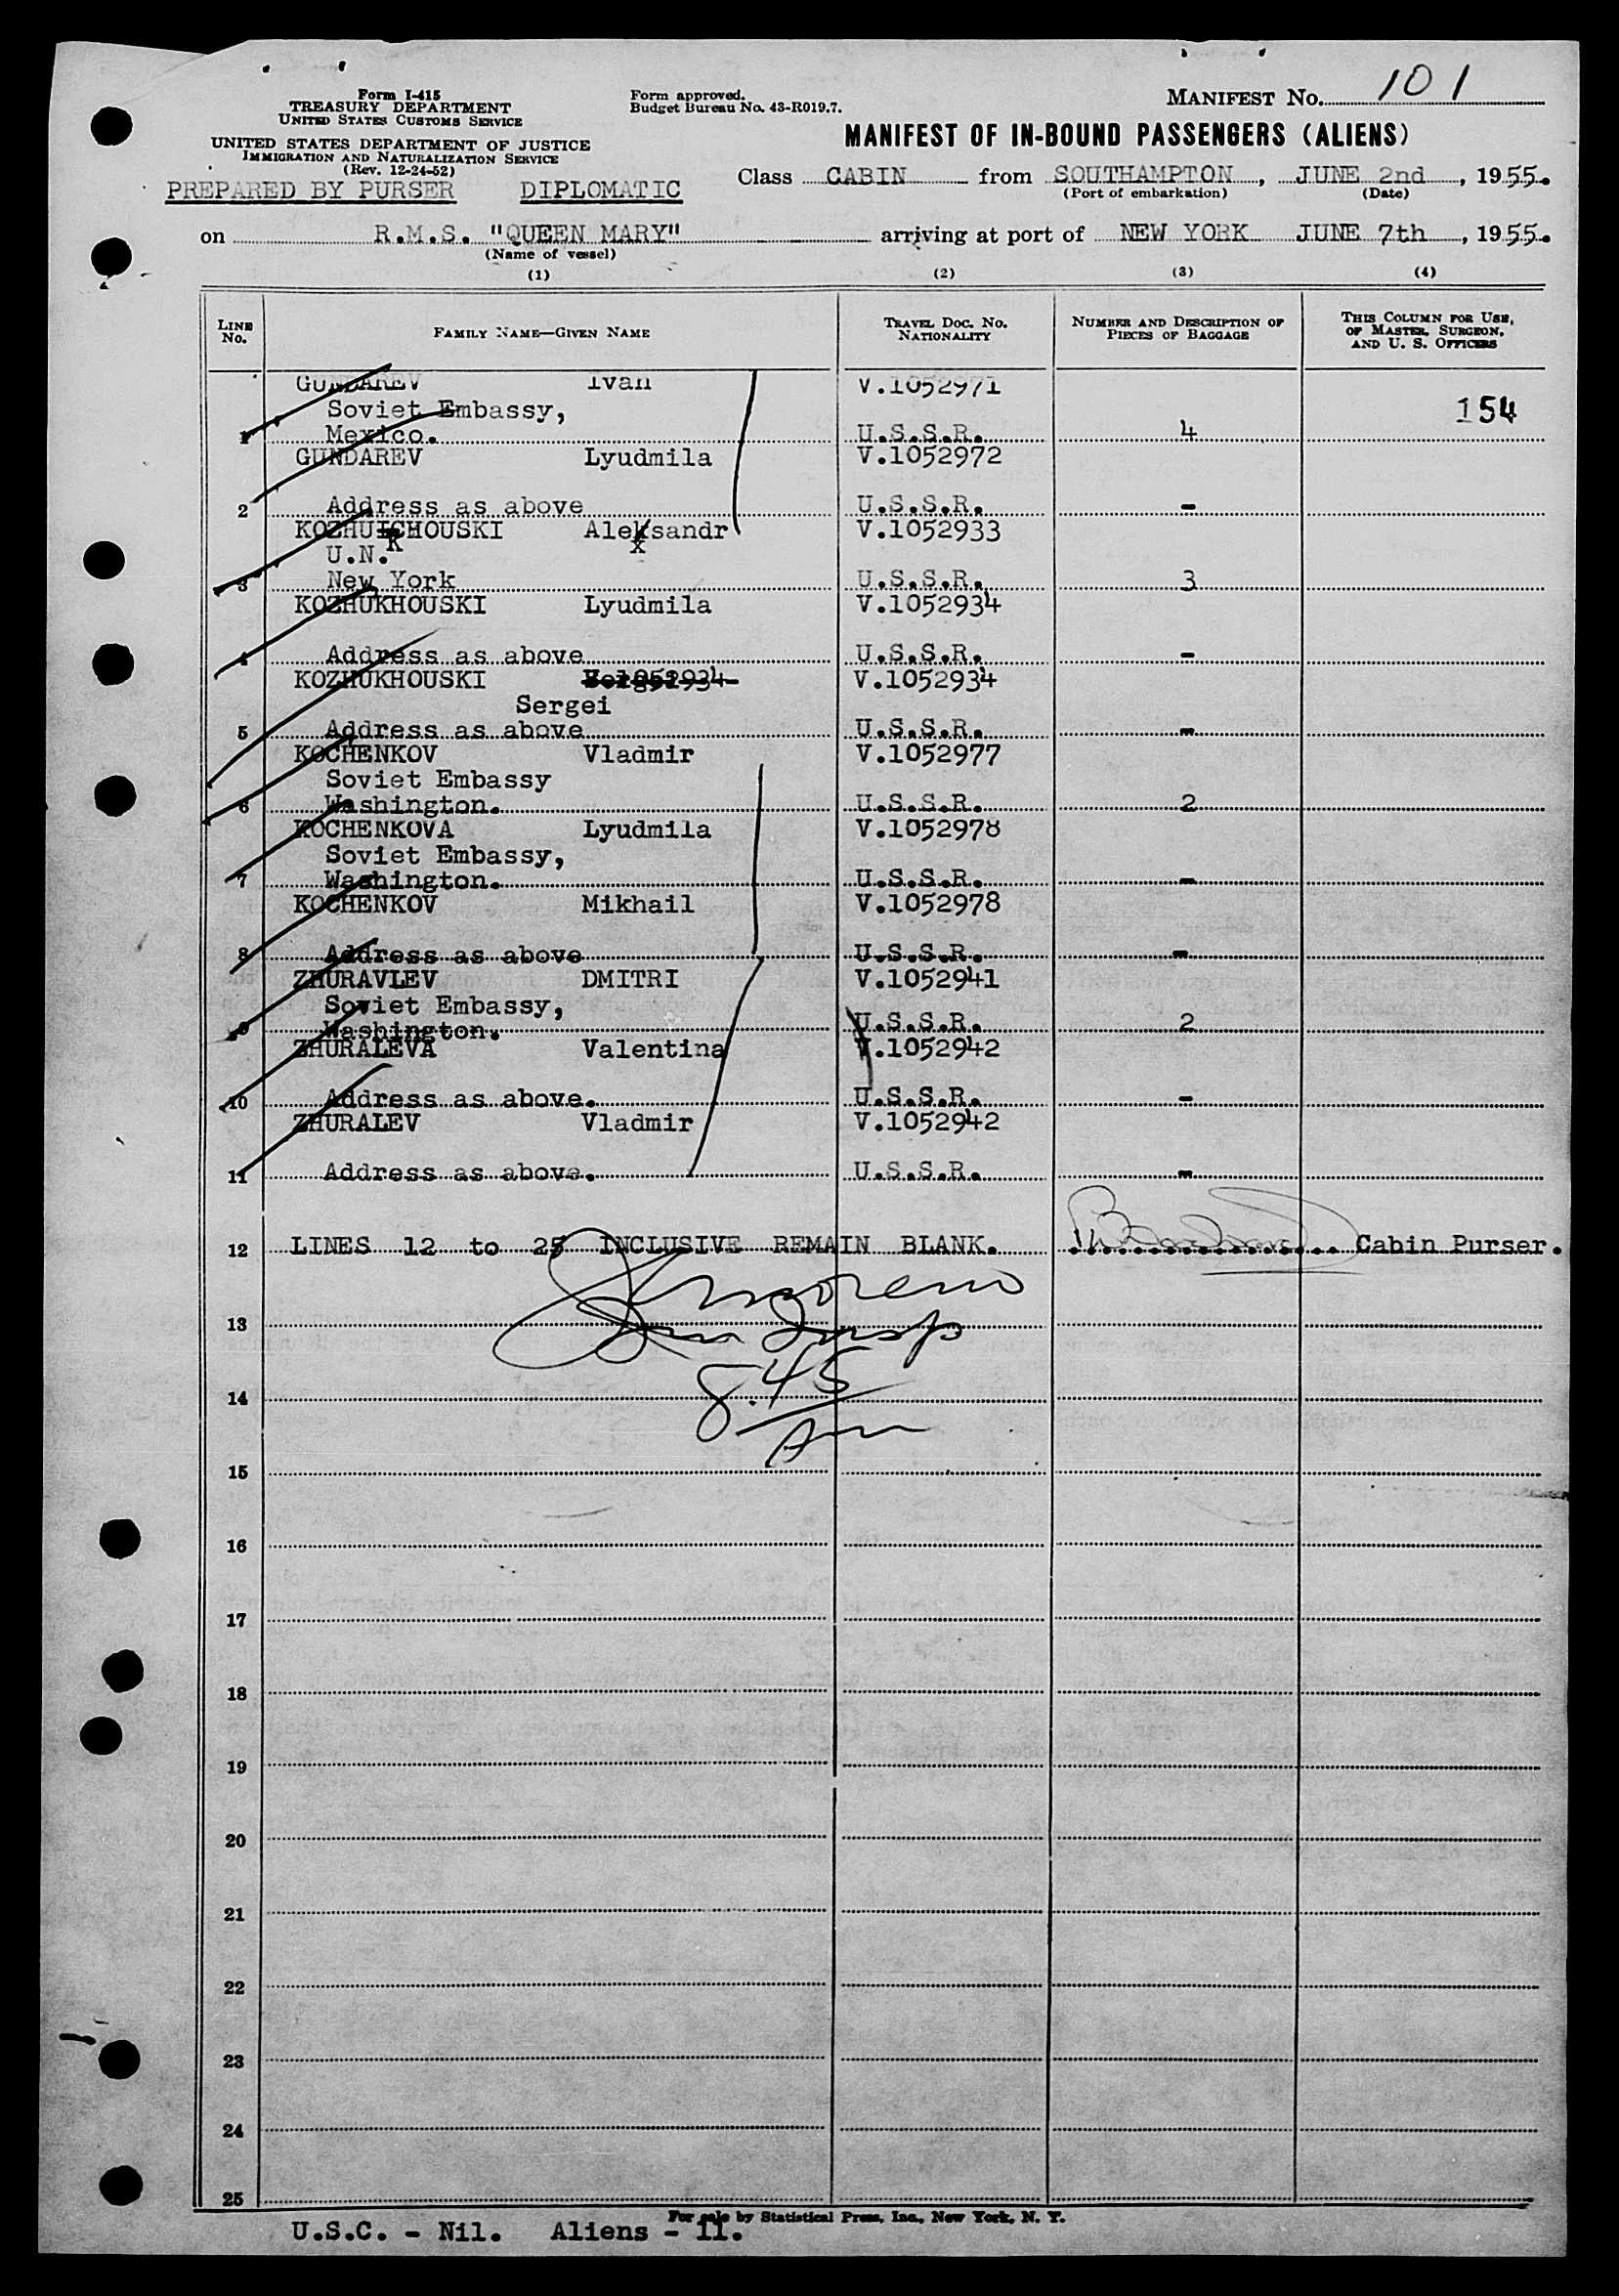 Form I-415
TREASURY DEPARTMENT
UNITED STATES CUSTOMS SERVICE
UNITED STATES DEPARTMENT OF JUSTICE
IMMIGRATION AND NATURALIZATION SERVICE
(Rev. 12-24-52)
PREPARED BY PURSER DIPLOMATIC
Form approved.
Budget Bureau No. 43-R019.7.
MANIFEST NO. 101
MANIFEST OF IN-BOUND PASSENGERS (ALIENS)
Class CABIN from SOUTHAMPTON, JUNE 2nd, 1955.
(Port of embarkation) (Date)
on R.M.S. "QUEEN MARY" arriving at port of NEW YORK JUNE 7th, 1955.
(Name of vessel)
(1) (2) (3) (4)
LINE NO. FAMILY NAME—GIVEN NAME TRAVEL DOC. NO. NATIONALITY NUMBER AND DESCRIPTION OF PIECES OF BAGGAGE THIS COLUMN FOR USE, OF MASTER, SURGEON, AND U. S. OFFICERS
GUNDAREV Ivan V.1052971
Soviet Embassy, 154
1 Mexico. U.S.S.R. 4
GUNDAREV Lyudmila V.1052972
2 Address as above U.S.S.R. -
KOZHUICHOUSKI Aleksandr V.1052933
K x
U.N.
3 New York U.S.S.R. 3
KOZHUKHOUSKI Lyudmila V.1052934
4 Address as above U.S.S.R. -
KOZHUKHOUSKI V.1052934
Sergei
5 Address as above U.S.S.R. -
KOCHENKOV Vladmir V.1052977
Soviet Embassy
6 Washington. U.S.S.R. 2
KOCHENKOVA Lyudmila V.1052978
Soviet Embassy,
7 Washington. U.S.S.R. -
KOCHENKOV Mikhail V.1052978
8 Address as above U.S.S.R. -
ZHURAVLEV DMITRI V.1052941
Soviet Embassy,
9 Washington. U.S.S.R. 2
ZHURALEVA Valentina V.1052942
10 Address as above. U.S.S.R. -
ZHURALEV Vladmir V.1052942
11 Address as above. U.S.S.R. -
12 LINES 12 to 25 INCLUSIVE REMAIN BLANK. Cabin Purser.
moreno
13 Insp
14 8.45
Am
15
16
17
18
19
20
21
22
23
24
25
For sale by Statistical Press, Inc., New York, N. Y.
U.S.C. - Nil. Aliens - 11.